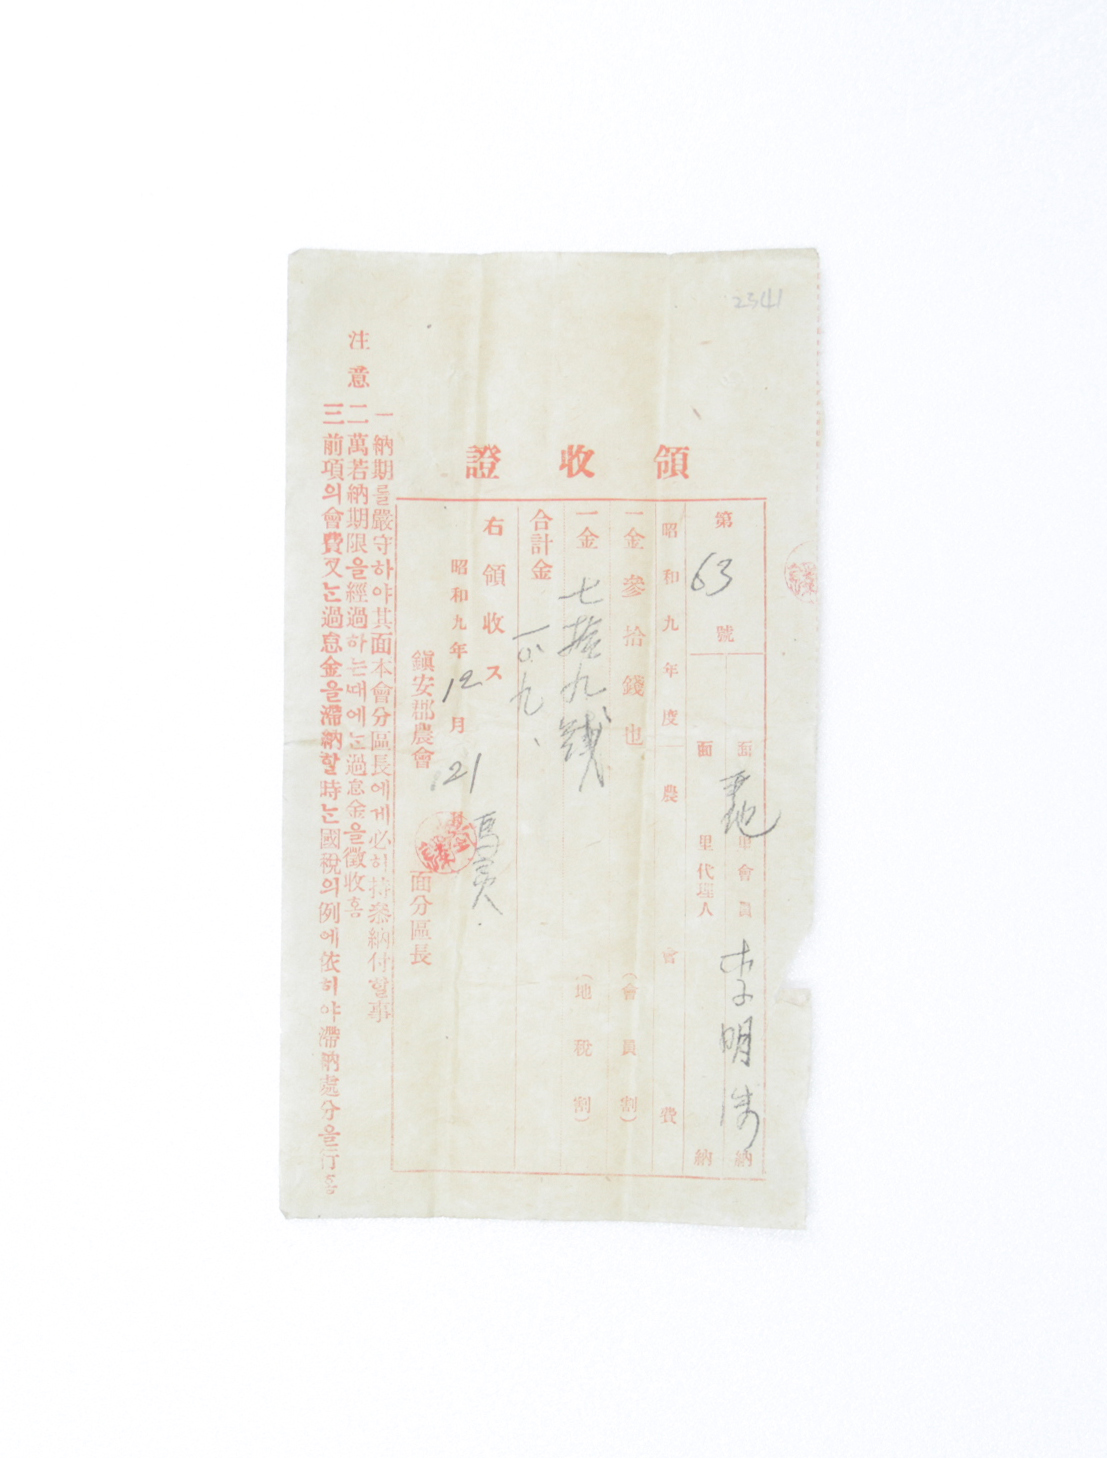 2341
領收證
第63號
面 里會員 李明 納
面 里代理人 納
昭和九年度農會費
一金參拾錢也 (會員割)
一金七拾九錢 (地稅割)
合計金 一.〇九
右領收ス
昭和九年12月21日
鎭安郡農會 馬靈面分區長
注意
一 納期를嚴守하야其面本會分區長에게必히持參納付할事
二 萬若納期限을經過하는때에는過怠金을徵收홈
三 前項의會費又는過怠金을滯納할時는國稅의例에依히야滯納處分을行홈